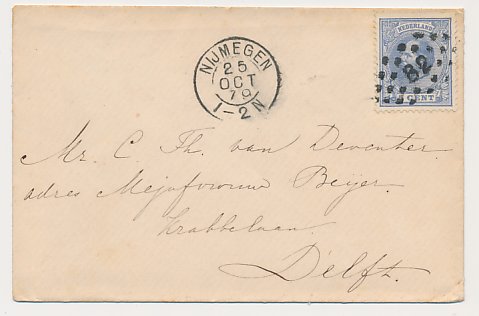 NEDERLAND
82
5 CENT
NIJMEGEN
25
OCT
79
1-2N
Mr. C. Th. van Deventer.
adres Mejufvrouw Beijer.
Krabbelaan.
Delft.